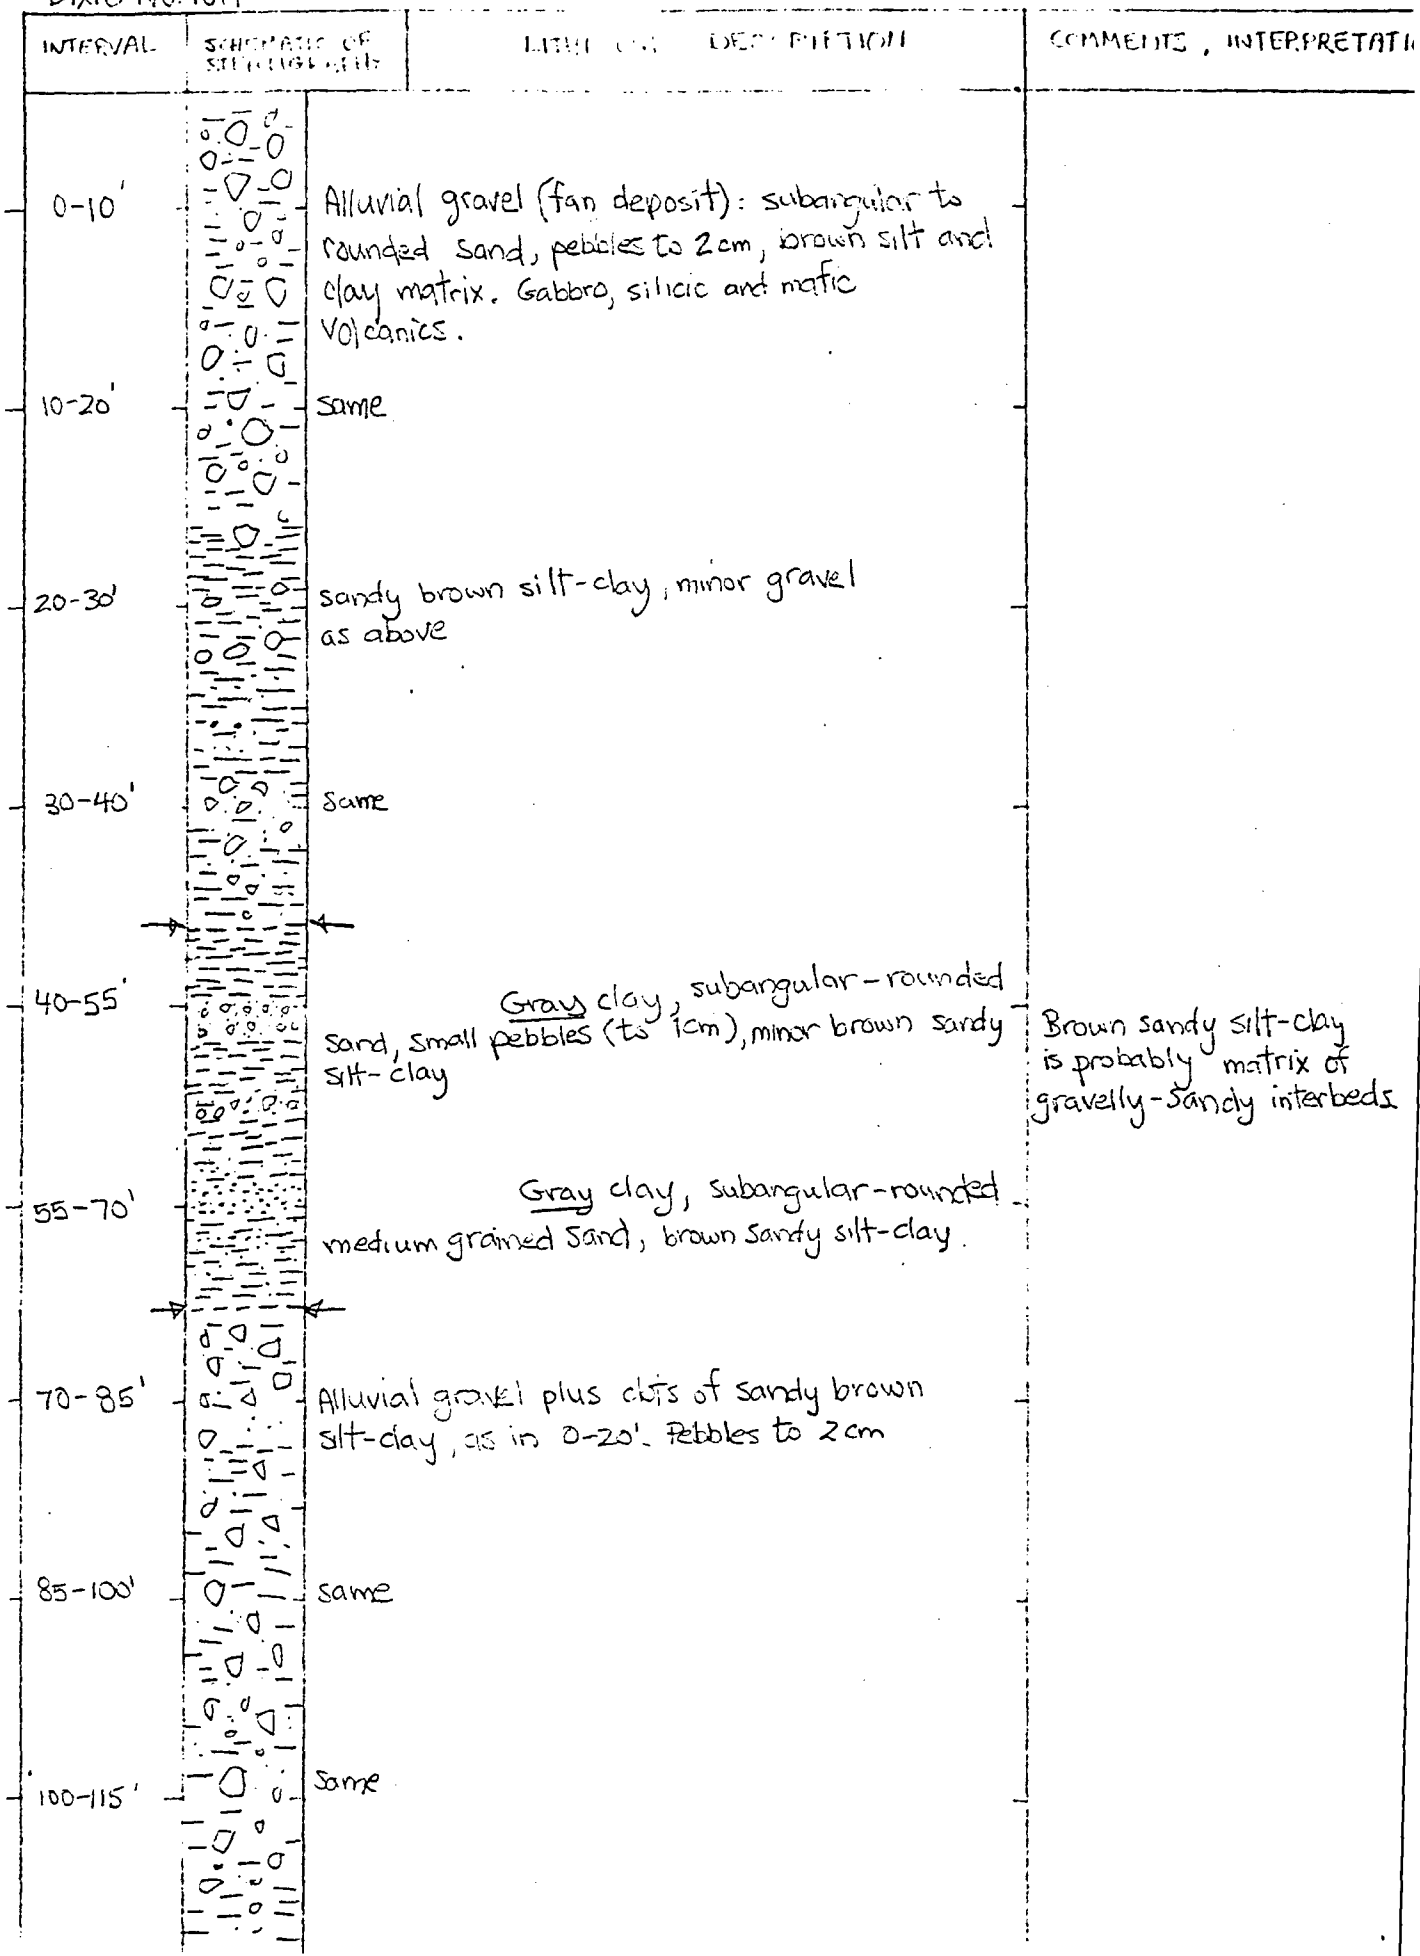 INTERVAL
SCHEMATIC OF
DESCRIPTION
COMMENTS, INTERPRETATI
0-10'
Alluvial gravel (fan deposit): subangular to
rounded sand, pebbles to 2cm, brown silt and
clay matrix. Gabbro, silicic and mafic
Volcanics.
10-20'
same
20-30'
sandy brown silt-clay, minor gravel
as above
30-40'
same
40-55'
Gray clay, subangular-rounded
sand, small pebbles (to 1cm), minor brown sandy
silt-clay
Brown sandy silt-clay
is probably matrix of
gravelly-sandy interbeds
55-70'
Gray clay, subangular-rounded
medium grained sand, brown sandy silt-clay.
70-85'
Alluvial gravel plus of sandy brown
silt-clay, as in 0-20'. Pebbles to 2cm
85-100'
same
100-115'
Same